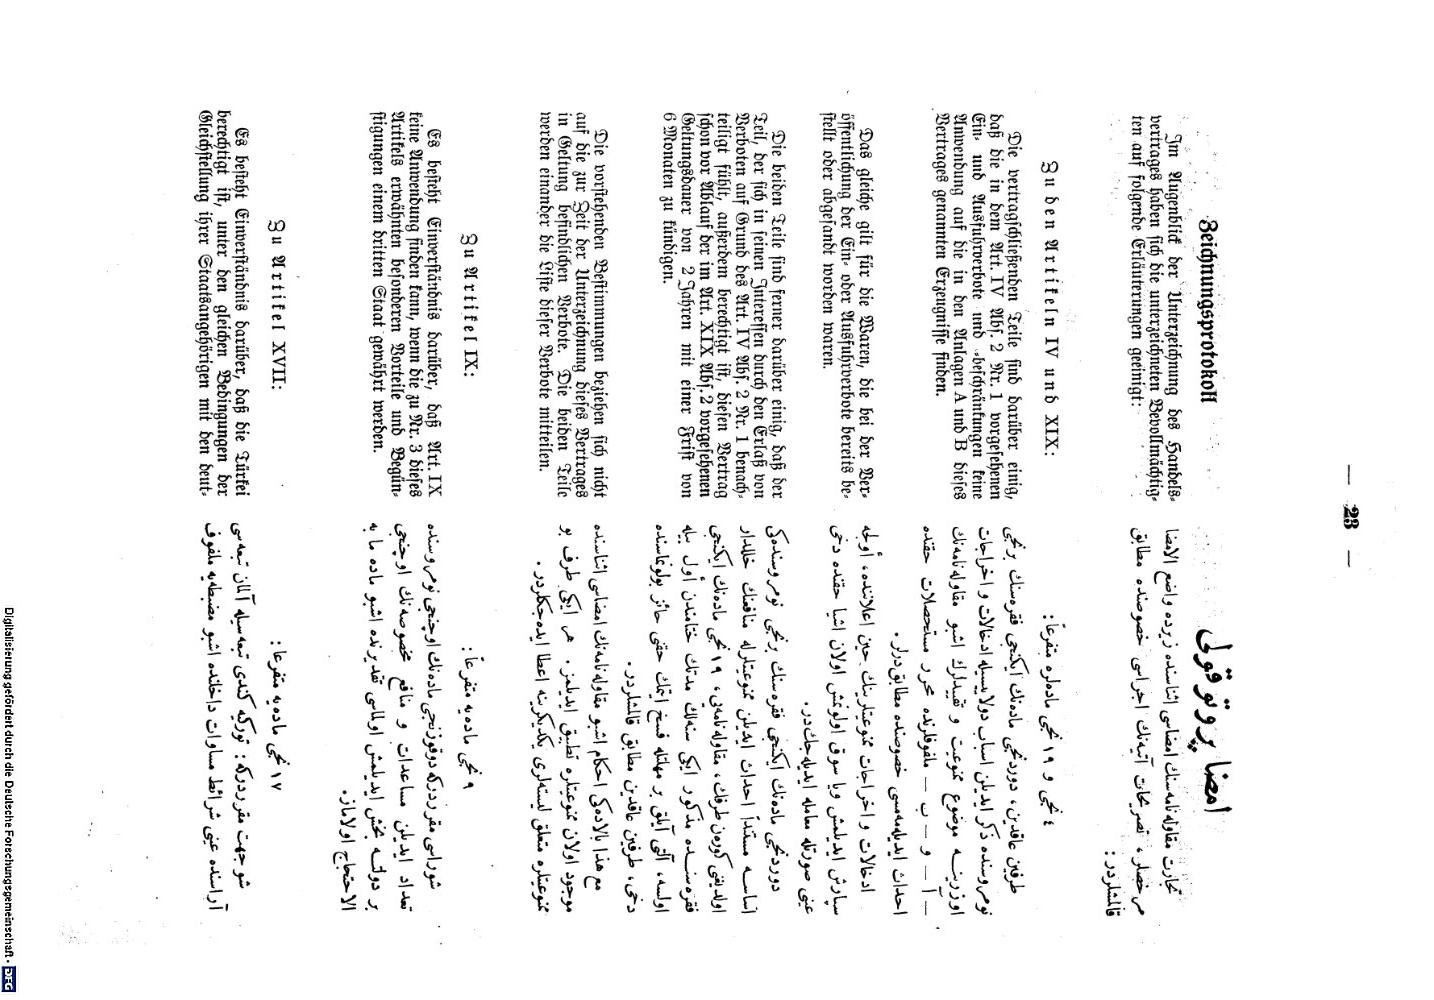 — 23 —
Zeichnungsprotokoll
Im Augenblick der Unterzeichnung des Handels-
vertrages haben sich die unterzeichneten Bevollmächtig-
ten auf folgende Erläuterungen geeinigt:
Zu den Artikeln IV und XIX:
Die vertragschließenden Teile sind darüber einig,
daß die in dem Art. IV Abs. 2 Nr. 1 vorgesehenen
Ein- und Ausfuhrverbote und -beschränkungen keine
Anwendung auf die in den Anlagen A und B dieses
Vertrages genannten Erzeugnisse finden.
Das gleiche gilt für die Waren, die bei der Ver-
öffentlichung der Ein- oder Ausfuhrverbote bereits be-
stellt oder abgesandt worden waren.
Die beiden Teile sind ferner darüber einig, daß der
Teil, der sich in seinen Interessen durch den Erlaß von
Verboten auf Grund des Art. IV Abs. 2 Nr. 1 benach-
teiligt fühlt, außerdem berechtigt ist, diesen Vertrag
schon vor Ablauf der im Art. XIX Abs. 2 vorgesehenen
Geltungsdauer von 2 Jahren mit einer Frist von
6 Monaten zu kündigen.
Die vorstehenden Bestimmungen beziehen sich nicht
auf die zur Zeit der Unterzeichnung dieses Vertrages
in Geltung befindlichen Verbote. Die beiden Teile
werden einander die Liste dieser Verbote mitteilen.
Zu Artikel IX:
Es besteht Einverständnis darüber, daß Art. IX
keine Anwendung finden kann, wenn die zu Nr. 3 dieses
Artikels erwähnten besonderen Vorteile und Begün-
stigungen einem dritten Staat gewährt werden.
Zu Artikel XVII:
Es besteht Einverständnis darüber, daß die Türkei
berechtigt ist, unter den gleichen Bedingungen der
Gleichstellung ihrer Staatsangehörigen mit den deut-
امضا پروتوقولی
تجارت مقاوله‌نامه‌سنك امضاسی اثناسنده زیرده واضع الامضا
مرخصلر، تصریحات آتیه‌نك اجراسی خصوصنده مطابق
قالمشلردر:
٤ نجی و ١٩ نجی ماده‌لره متفرعاً:
طرفین عاقدین، دوردنجی ماده‌نك ایكنجی فقره‌سنك برنجی
نومروسنده ذكر ایدیلن اسباب دولاییسیله ادخالات و اخراجات
اوزرینه موضوع ممنوعیت و تقییداتك اشبو مقاوله‌نامه‌نك
— آ — و — ب — ملفوفلرنده محرر مستحصلات حقنده
احداث ایدیله‌مه‌مسی خصوصنده مطابقدرلر.
ادخالات و اخراجات ممنوعیتلرینك حین اعلاننده، أولجه
سپارش ایدیلمش ویا سوق اولونمش اولان اشیا حقنده دخی
عینی صورتله معامله ایدیله‌جكدر.
دوردنجی ماده‌نك ایكنجی فقره‌سنك برنجی نومروسنده‌كی
اساسه مستنداً احداث ایدیلن ممنوعیتلرله منافعنك خللدار
اولدیغنی كوره‌ن طرفك، مقاوله‌نامه‌یی، ١٩ نجی ماده‌نك ایكنجی
فقره‌سنده مذكور ایكی سنه‌لك مدتك ختامندن أول بیله
اولسه، آلتی آیلق بر مهلتله فسخ ایتمك حقنی حائز بولوناسنده
دخی، طرفین عاقدین مطابق قالمشلردر.
مع هذا بالاده‌كی احكام اشبو مقاوله‌نامه‌نك امضاسی اثناسنده
موجود اولان ممنوعیتلره تطبیق ایدیلمز. هر ایكی طرف بو
ممنوعیتلره متعلق لیسته‌لری یكدیكرینه اعطا ایده‌جكلردر.
٩ نجی ماده‌یه متفرعاً:
شوراسی مقرردركه دوقوزنجی ماده‌نك اوچنجی نومروسنده
تعداد ایدیلن مساعدات و منافع مخصوصه‌نك اوچنجی
بر دولته بخش ایدیلمش اولماسی تقدیرنده اشبو ماده ما به
الاحتجاج اولاماز.
١٧ نجی ماده‌یه متفرعاً:
شو جهت مقرردركه: توركیه كندی تبعه‌سیله آلمان تبعه‌سی
آراسنده عینی شرائط مساوات داخلنده اشبو مضبطه‌یه ملفوف
Digitalisierung gefördert durch die Deutsche Forschungsgemeinschaft · DFG